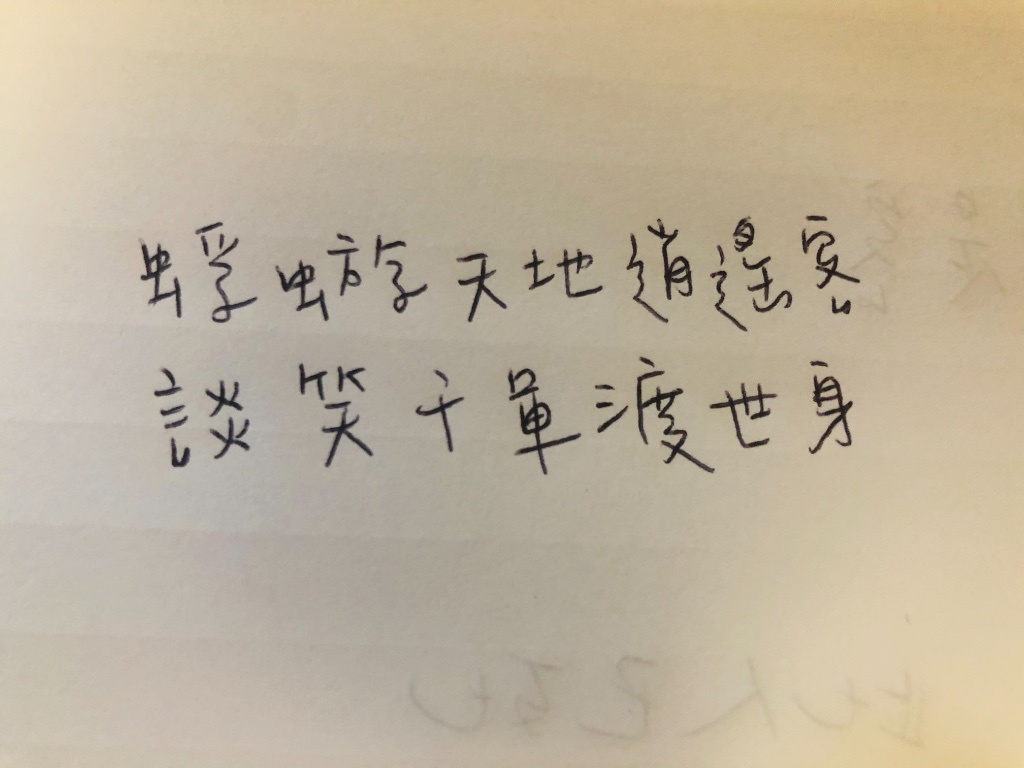 蜉蝣天地逍遙客
談笑千單渡世身